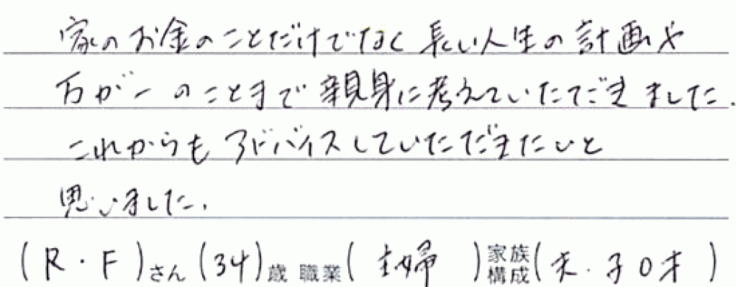 家のお金のことだけでなく長い人生の計画や
万が一のことまで親身に考えていただきました.
これからもアドバイスしていただきたいと
思いました.
(R・F)さん(34)歳 職業(主婦)家族構成(夫・子0才)